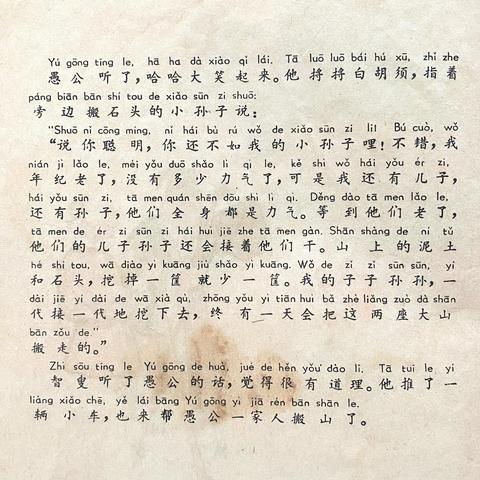 Yú gōng tīng le, hā ha dà xiào qǐ lái. Tā luō luō bái hú xū, zhǐ zhe
愚公听了，哈哈大笑起来。他捋捋白胡须，指着
páng biān bān shí tou de xiǎo sūn zi shuō:
旁边搬石头的小孙子说：
"Shuō nǐ cōng míng, nǐ hái bù rú wǒ de xiǎo sūn zi li! Bú cuò, wǒ
“说你聪明，你还不如我的小孙子哩！不错，我
nián jì lǎo le, méi yǒu duō shǎo lì qi le, kě shì wǒ hái yǒu ér zi,
年纪老了，没有多少力气了，可是我还有儿子，
hái yǒu sūn zi, tā men quán shēn dōu shì lì qi. Děng dào tā men lǎo le,
还有孙子，他们全身都是力气。等到他们老了，
tā men de ér zi sūn zi hái huì jiē zhe tā men gàn. Shān shàng de ní tǔ
他们的儿子孙子还会接着他们干。山上的泥土
hé shí tou, wā diào yì kuāng jiù shǎo yì kuāng. Wǒ de zǐ zǐ sūn sūn, yí
和石头，挖掉一筐就少一筐。我的子子孙孙，一
dài jiē yí dài de wā xià qù, zhōng yǒu yì tiān huì bǎ zhè liǎng zuò dà shān
代接一代地挖下去，终有一天会把这两座大山
bān zǒu de."
搬走的。”
Zhì sǒu tīng le Yú gōng de huà, jué de hěn yǒu dào lǐ. Tā tuī le yí
智叟听了愚公的话，觉得很有道理。他推了一
liàng xiǎo chē, yě lái bāng Yú gōng yì jiā rén bān shān le.
辆小车，也来帮愚公一家人搬山了。